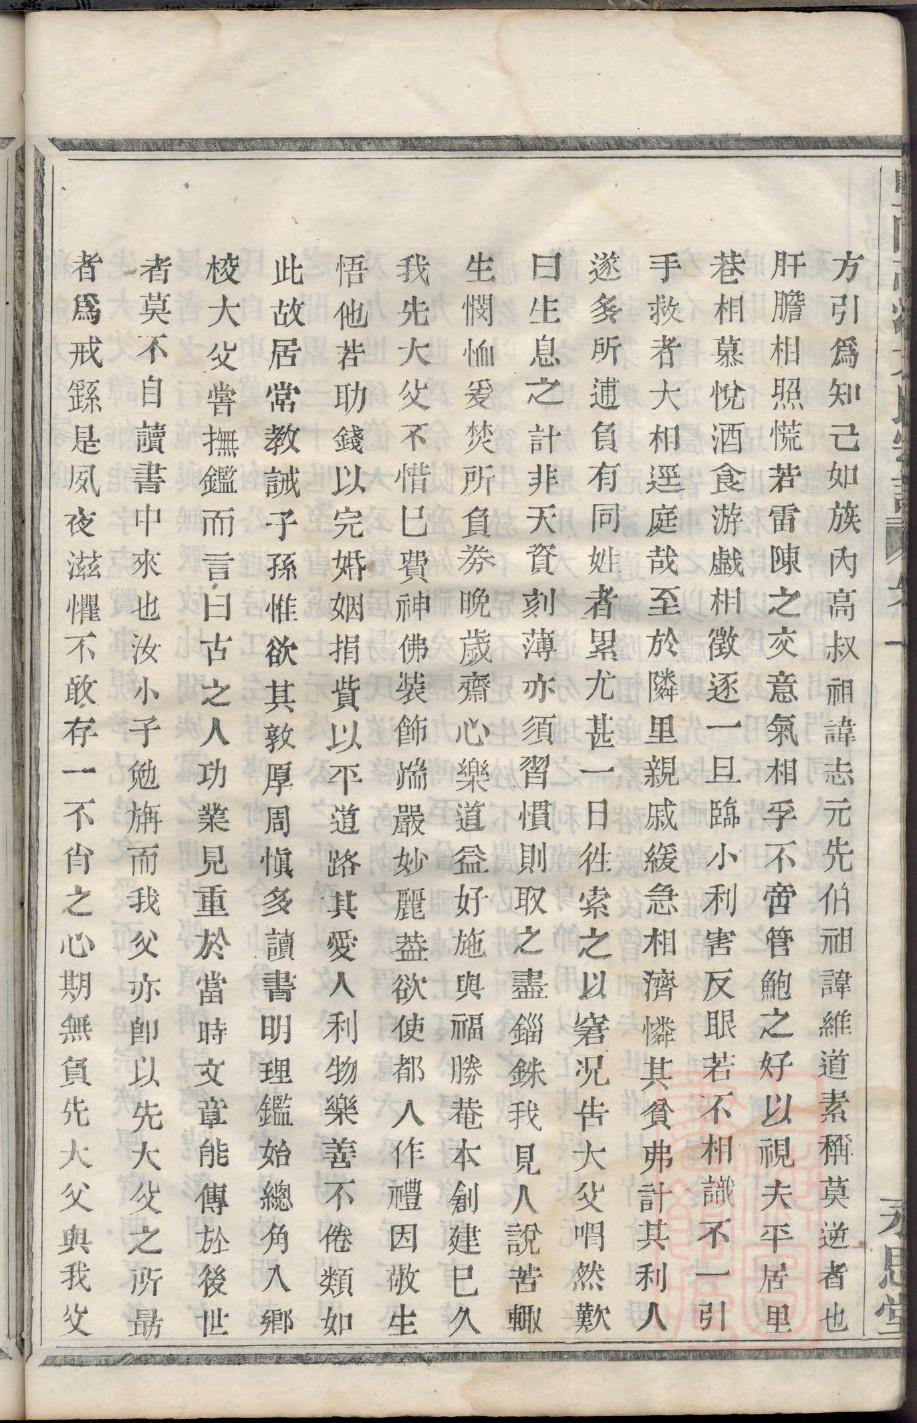 方引爲知己如族內高叔祖諱志元先伯祖諱維道素稱莫逆者也
肝膽相照慌若雷陳之交意氣相孚不啻管鮑之好以視夫平居里
巷相慕悅酒食游戲相徵逐一旦臨小利害反眼若不相識不一引
手救者大相逕庭哉至於隣里親戚緩急相濟憐其貧弗計其利人
遂多所逋負有同姓者累尤甚一日徃索之以窘況告大父喟然歎
曰生息之計非天資刻薄亦須習慣則取之盡錙銖我見人說苦輙
生憫恤爰焚所負劵晚歲齋心樂道益好施與福勝菴本創建已久
我先大父不惜已費神佛裝飾端嚴妙麗葢欲使都人作禮因敬生
悟他若助錢以完婚姻捐貲以平道路其愛人利物樂善不倦類如
此故居常教誡子孫惟欲其敦厚周愼多讀書明理鑑始總角入鄉
校大父嘗撫鑑而言曰古之人功業見重於當時文章能傳於後世
者莫不自讀書中來也汝小子勉旃而我父亦卽以先大父之所勗
者爲戒繇是夙夜滋懼不敢存一不肖之心期無負先大父與我父
永思堂